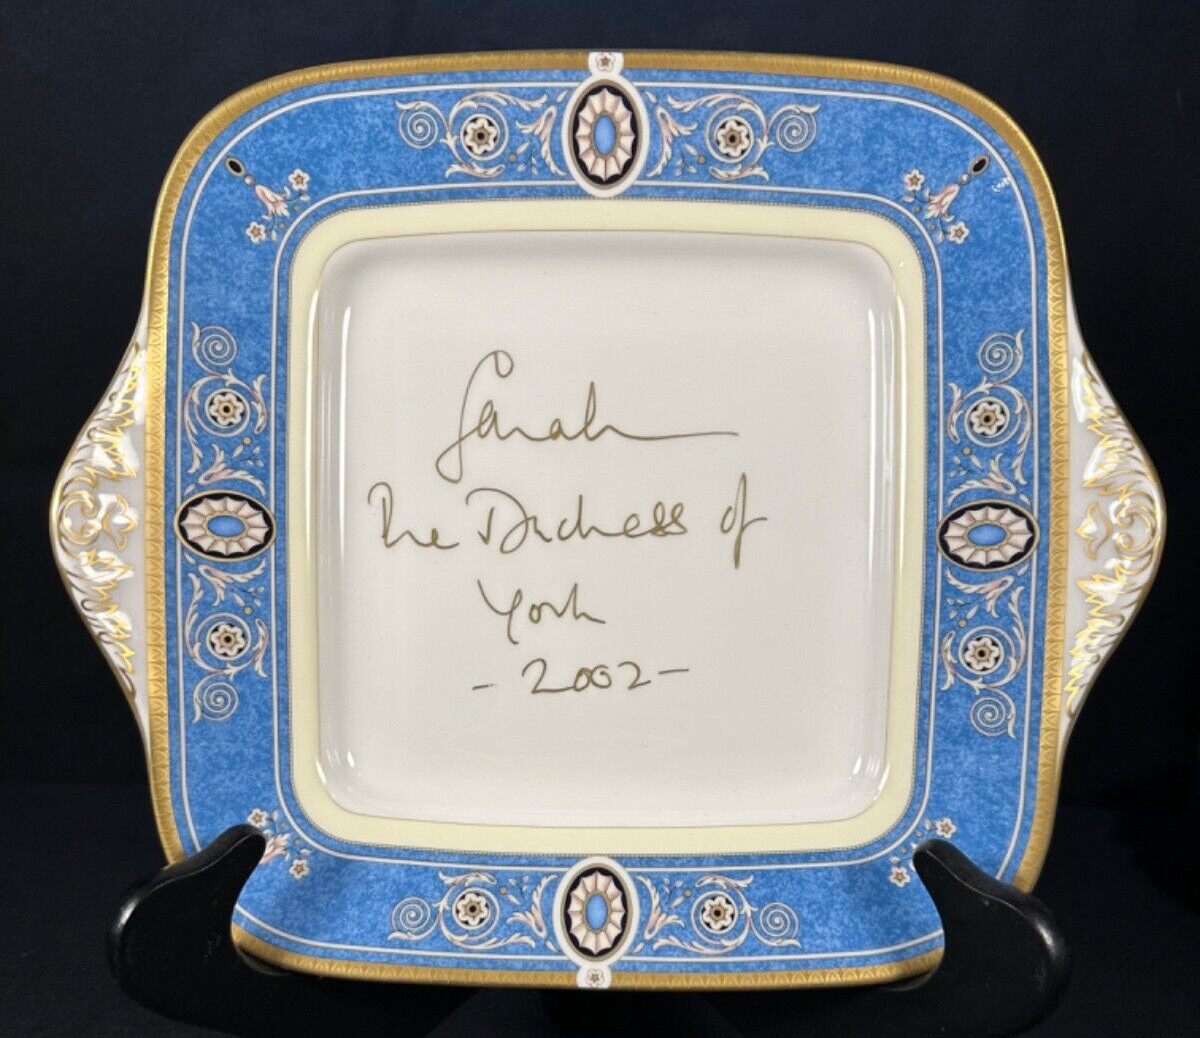 Sarah
The Duchess of
York
- 2002 -